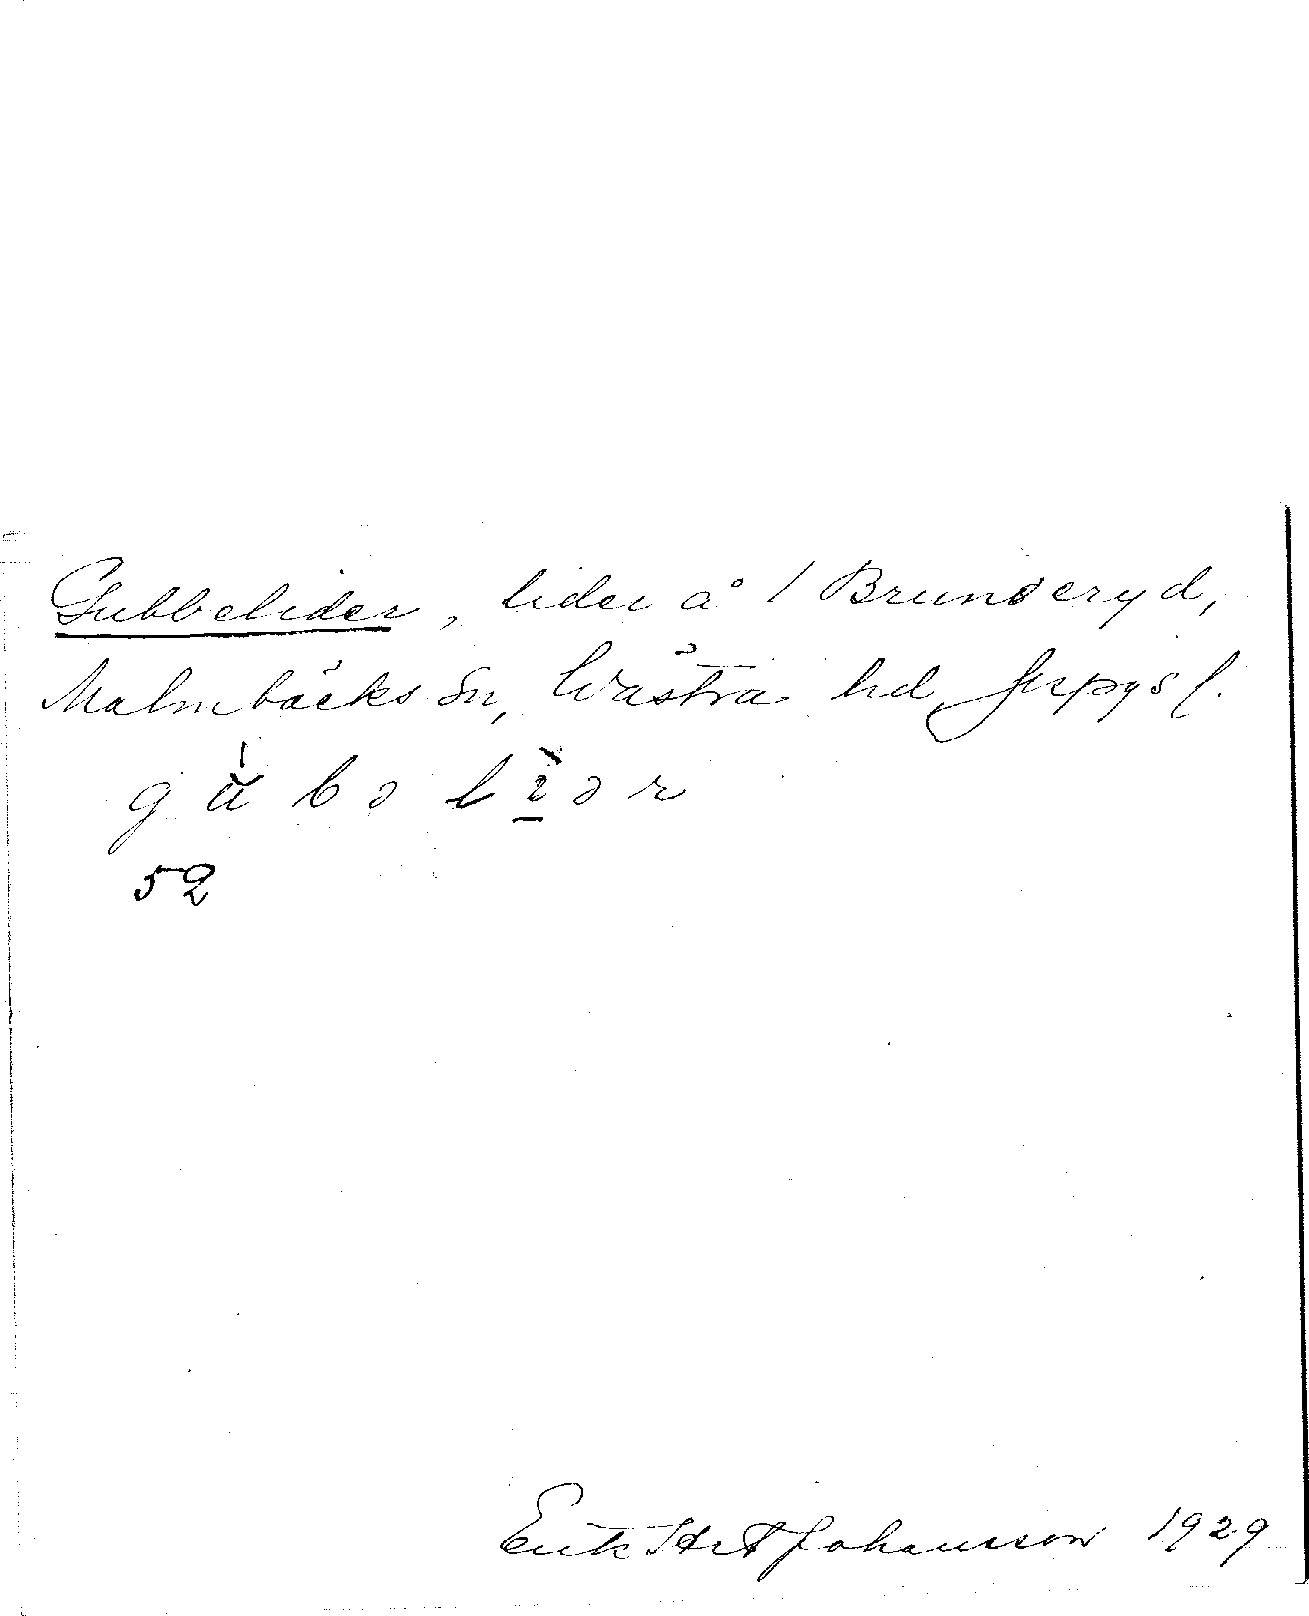 Gubbelider, lider å 1 Brunseryd,
Malmbäcks sn, Västra hd, Jkpgs l.
gu̇bəli̱ər
52
Erik Johansson 1929